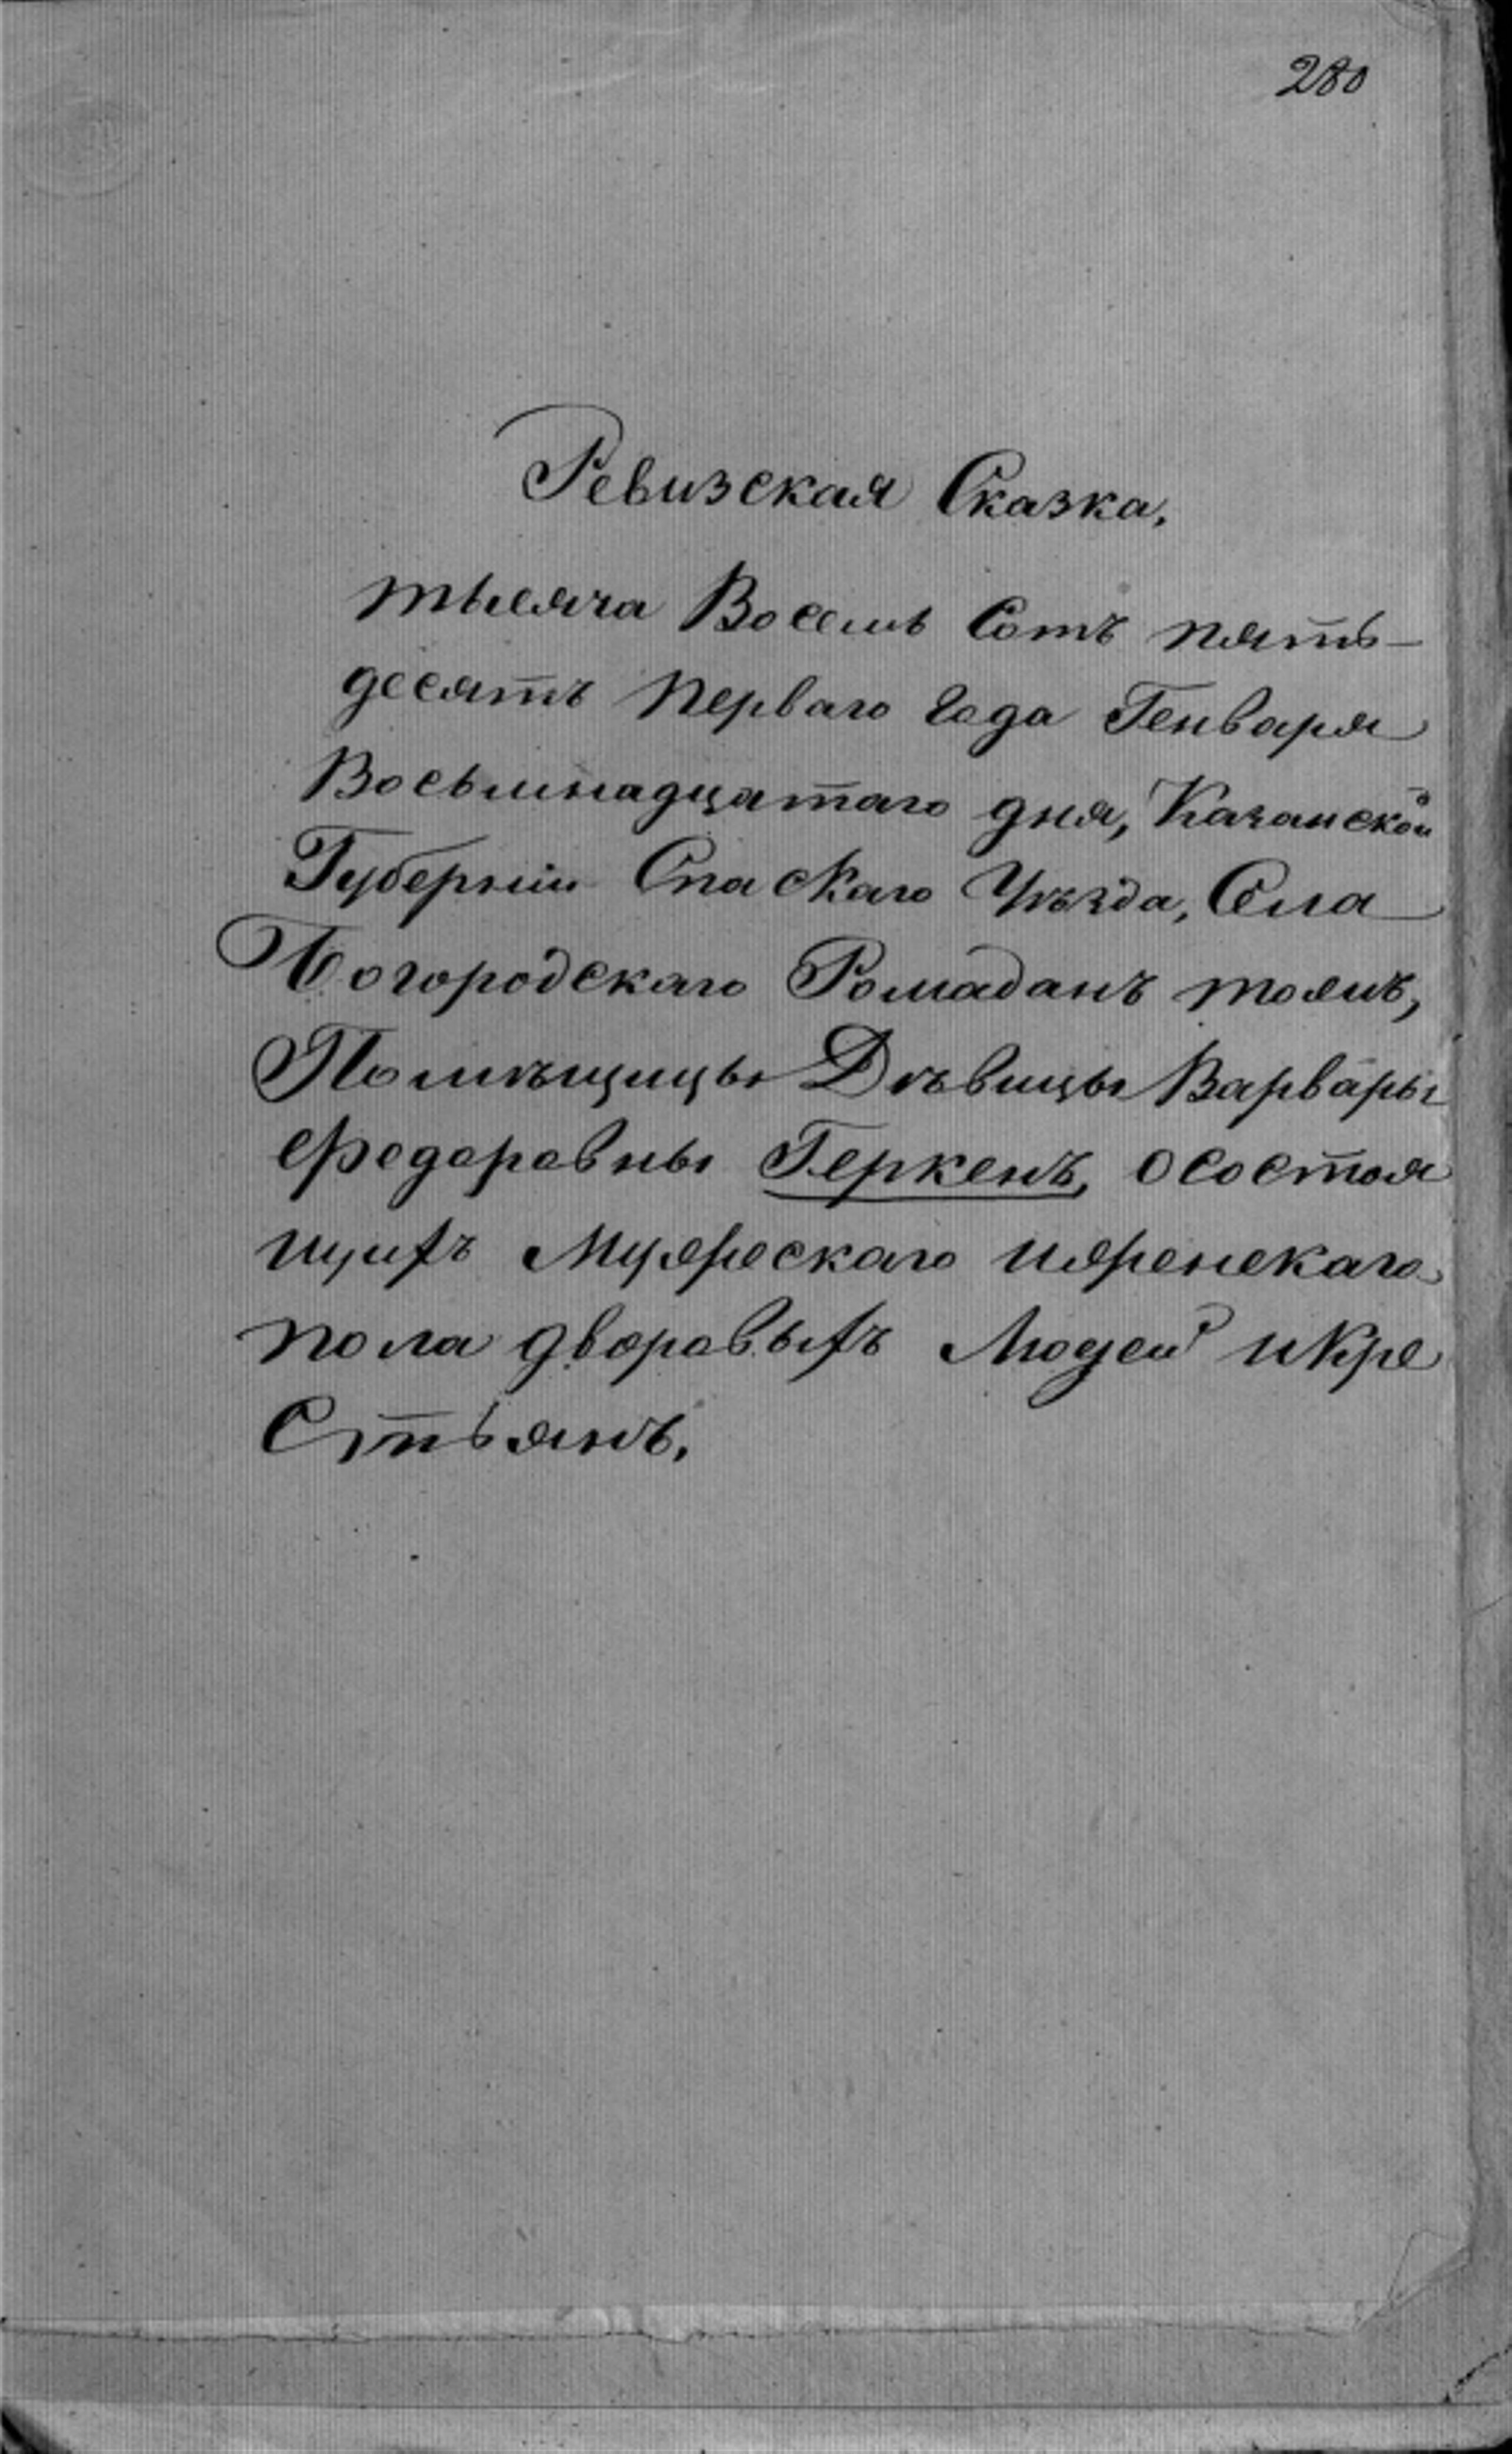 280
Ревизская Сказка,
тысяча Восемь Сотъ пять-
десятъ перваго года Генваря
Восьмнадцатаго дня, Казанской
Губернiи Спаскаго Уѣзда, Села
Богородскаго Ромаданъ тожъ,
Помѣщицы Дѣвицы Варвары
Федоровны Геркенъ, осостоя
щихъ Мужескаго иженскаго
пола дворовыхъ Людей иКре
Стьянъ.